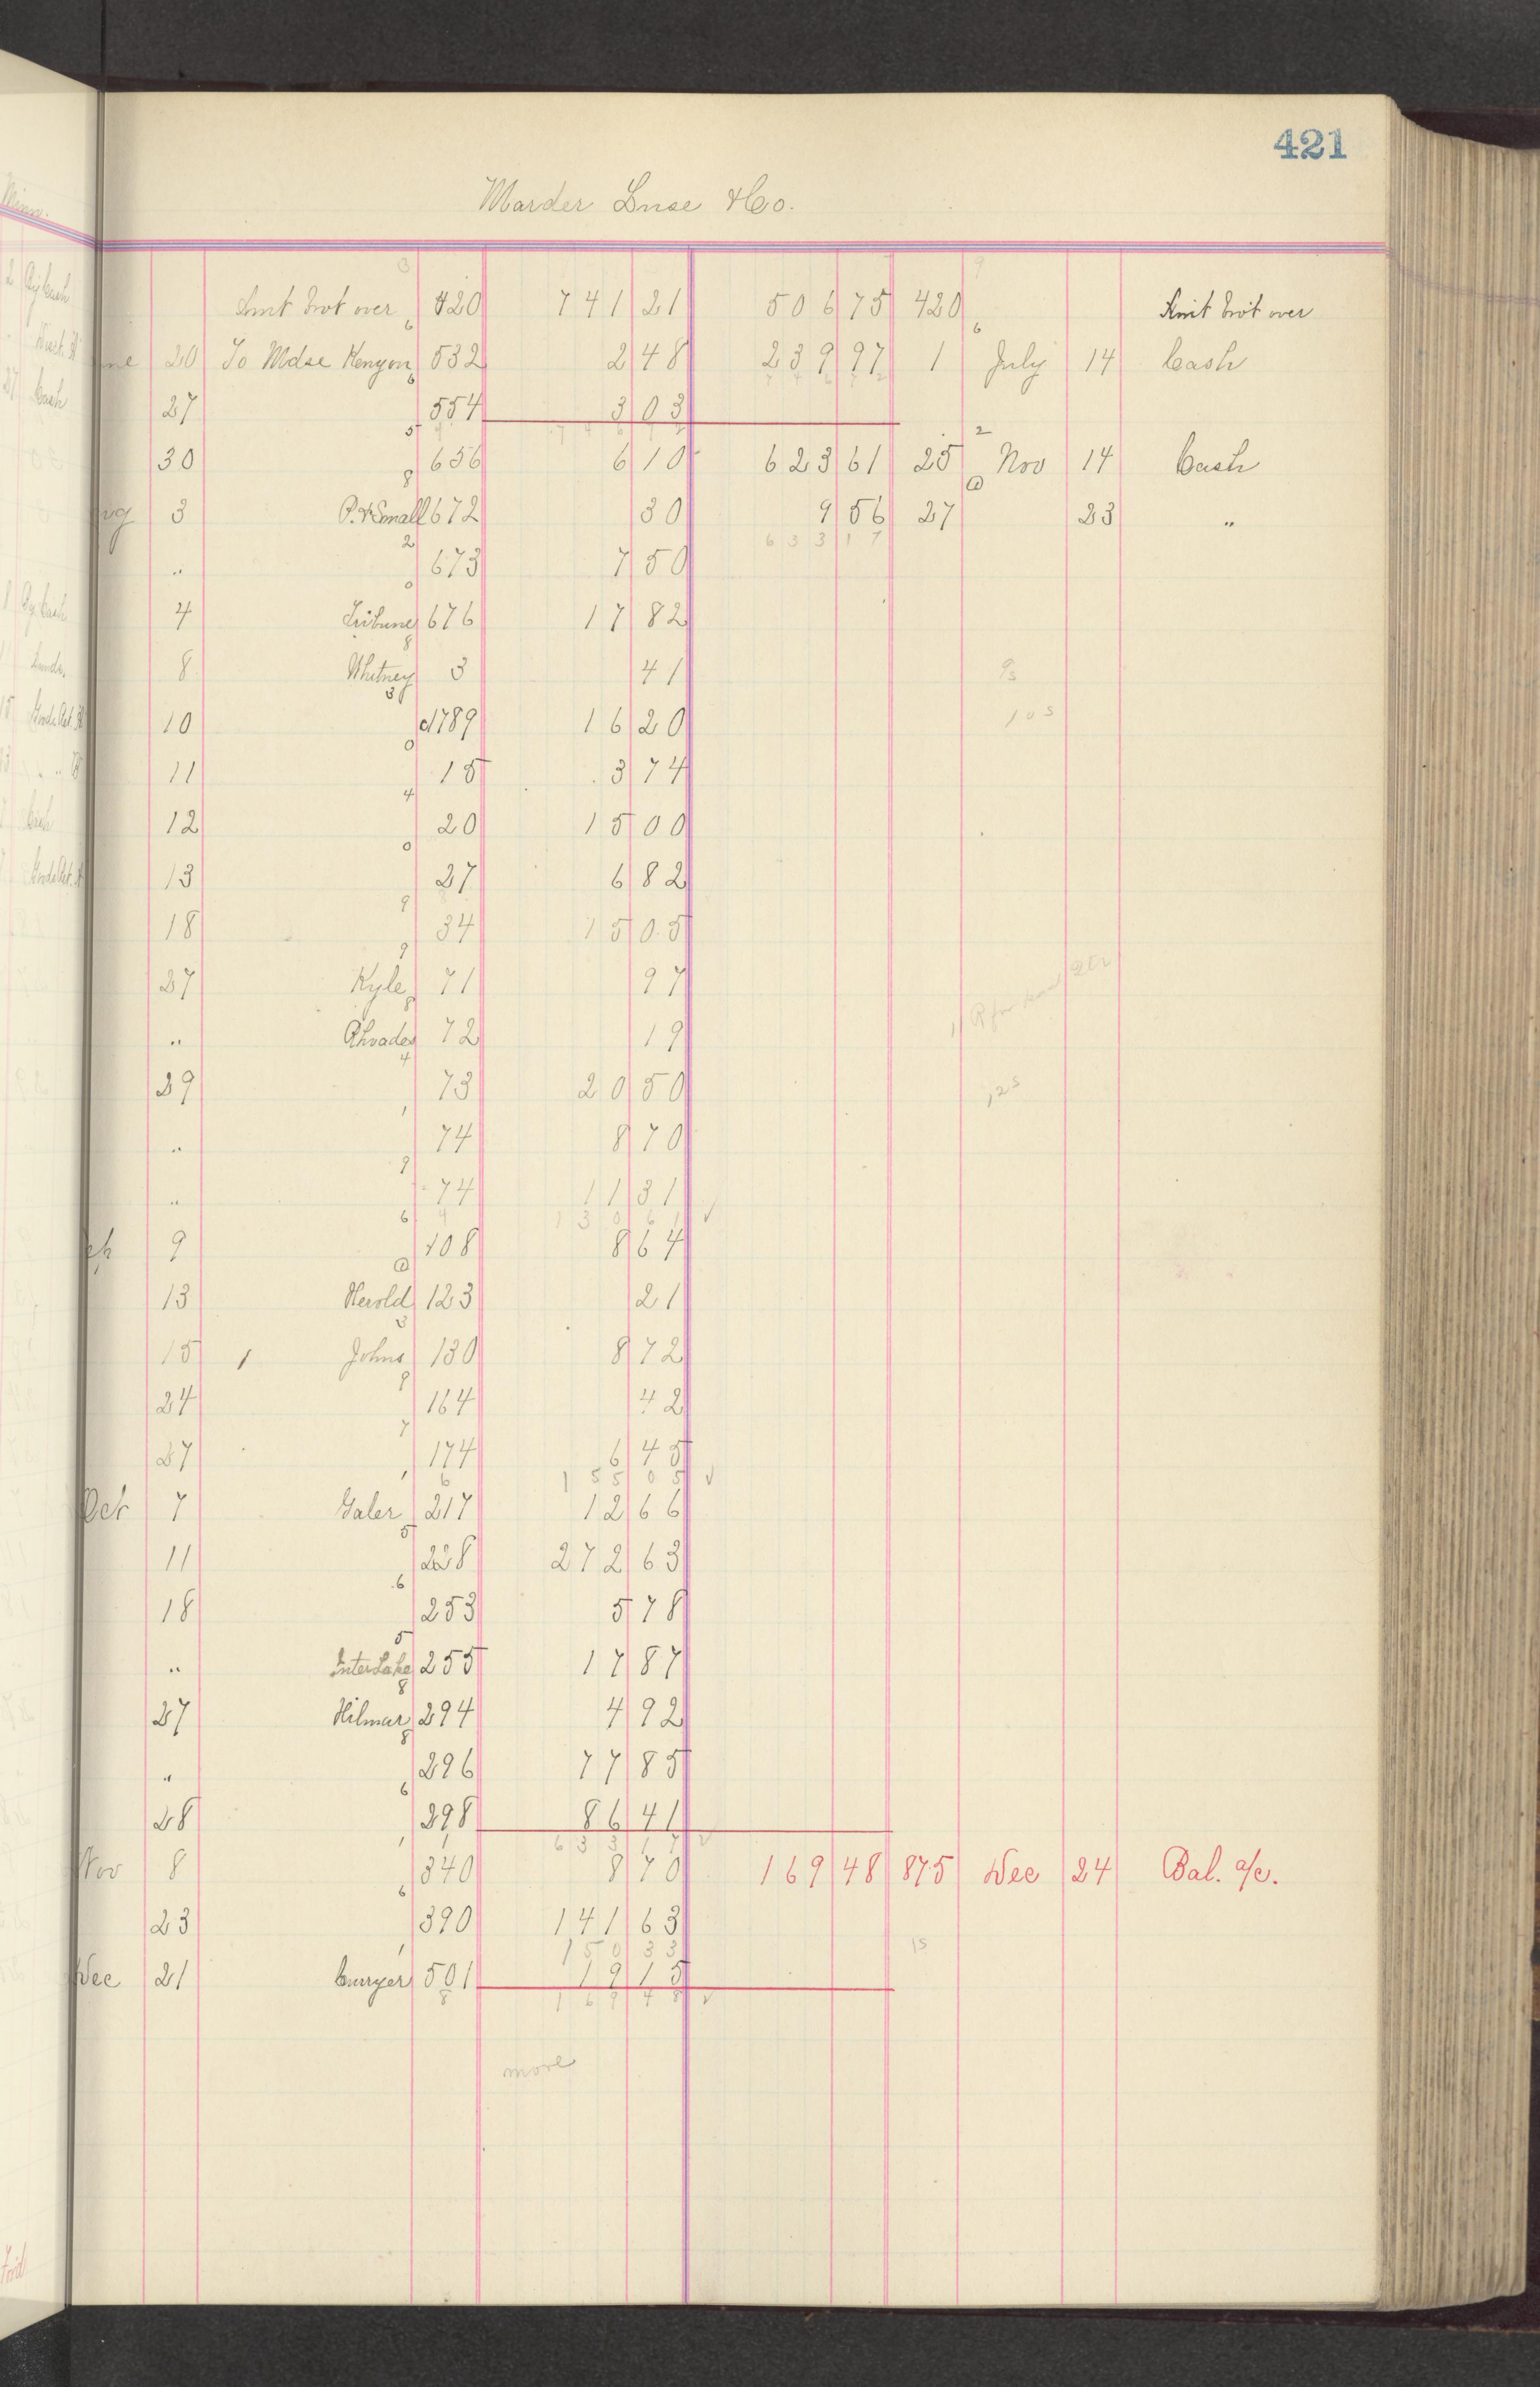 421
Marder Luse & Co.
Amt brot over 420 741 21 506 75 420 Amt brot over
20 To Mdse Kenyon 532 2 48 239 97 1 July 14 Cash
27 554 3 03
30 656 6 10 623 61 25 Nov 14 Cash
3 P. & Small 672 30 9 56 27 23 "
633 17
" 673 7 50
4 Tribune 676 17 82
8 Whitney 3 41
10 789 16 20
11 15 3 74
12 20 15 00
13 27 6 82
18 34 15 05
27 Kyle 71 97
" Rhoades 72 19
29 73 20 50
" 74 8 70
" 74 11 31
130 61 √
9 108 8 64
13 Herold 123 21
15 Johns 130 8 72
24 164 42
27 174 6 45
155 05 √
Oct 7 Galer 217 12 66
11 228 272 63
18 253 5 78
" Inter Lake 255 17 87
27 Hilmar 294 4 92
" 296 77 85
28 298 86 41
633 17 √
Nov 8 340 8 70 169 48 875 Dec 24 Bal. a/c.
23 390 141 63
150 33
Dec 21 501 19 15
169 48 √
more